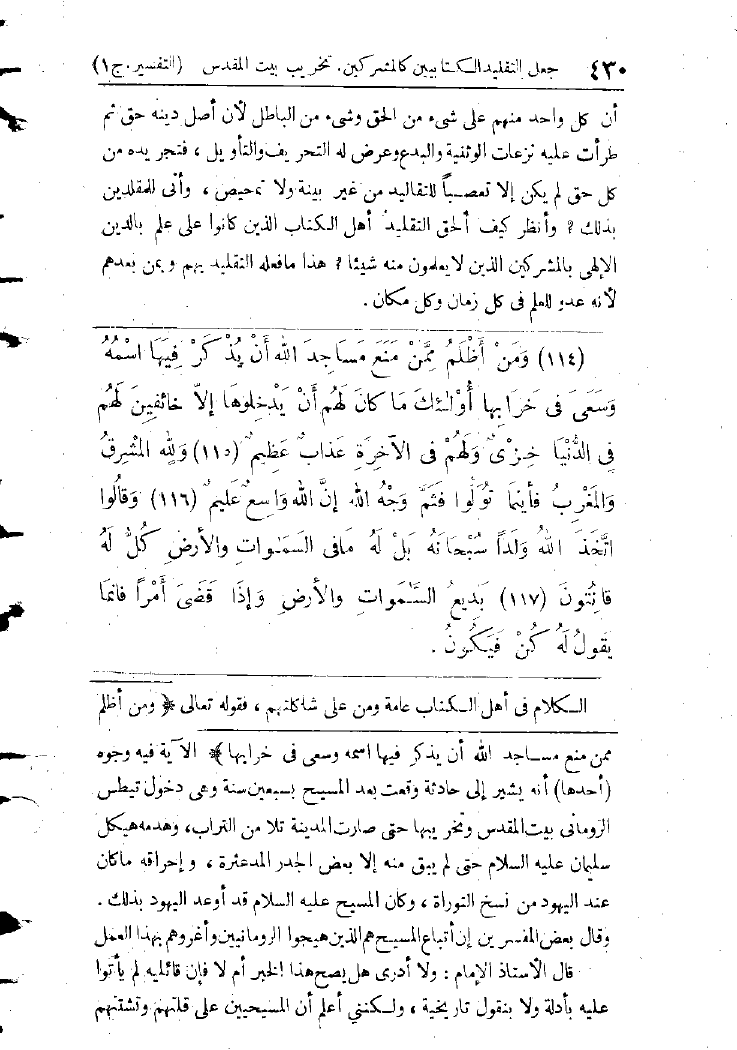 ٤٣٠ جعل التقليد الكتابيين كالمشركين. تخريب بيت المقدس (التفسير. ج ١)
أن كل واحد منهم على شىء من الحق وشىء من الباطل لأن أصل دينه حق ثم
طرأت عليه نزعات الوثنية والبدع وعرض له التحريف والتأويل ، فتجريده من
كل حق لم يكن إلا تعصباً للتقاليد من غير بينة ولا تمحيص ، وأنى للمقلدين
بذلك ? وأنظر كيف ألحق التقليدُ أهل الكتاب الذين كانوا على علم بالدين
الإلهى بالمشركين الذين لا يعلمون منه شيئا ? هذا ما فعله التقليد بهم وبمن بعدهم
لأنه عدو للعلم فى كل زمان وكل مكان .
(١١٤) وَمَنْ أَظْلَمُ مِمَّنْ مَنَعَ مَسَاجِدَ اللهِ أَنْ يُذْكَرَ فِيهَا اسْمُهُ
وَسَعَى فى خَرَابِهَا أُوْلَـٰئِكَ مَا كَانَ لَهُم أَنْ يَدْخِلوهَا إلاّ خَائِفينَ لَهُم
فِى الدُّنْيَا خِزْىٌ وَلَهُمْ فى الآخِرَةِ عَذَابٌ عَظِيمٌ (١١٥) وَلِلهِ المَشْرِقُ
وَالمَغْرِبُ فَأَينَمَا تُوَلُّوا فَثَمَّ وَجْهُ اللهِ إنَّ اللهَ وَاسِعٌ عَلِيمٌ (١١٦) وَقَالُوا
اتَّخَذَ اللهُ وَلَداً سُبْحَانَهُ بَلْ لَهُ مَا فى السَمـٰوَاتِ والأرضِ كُلٌّ لَهُ
قَانِتُونَ (١١٧) بَدِيعُ السَّمٰوَاتِ والأَرضِ وَإذَا قَضَىَ أَمْراً فَانمَا
يَقولُ لَهُ كُنْ فَيَكُونُ .
الكلام فى أهل الكتاب عامة ومن على شاكلتهم ، فقوله تعالى ﴿ ومن أظلم
ممن منع مساجد الله أن يذكر فيها اسمه وسعى فى خرابها ﴾ الآية فيه وجوه
(أحدها) أنه يشير إلى حادثة وقعت بعد المسيح بسبعين سنة وهى دخول تيطس
الرومانى بيت المقدس وتخريبها حتى صارت المدينة تلا من التراب، وهدمه هيكل
سليمان عليه السلام حتى لم يبق منه إلا بعض الجدر المدعثرة ، وإحراقه ما كان
عند اليهود من نسخ التوراة ، وكان المسيح عليه السلام قد أوعد اليهود بذلك .
وقال بعض المفسرين إن أتباع المسيح هم الذين هيجوا الرومانيين وأغروهم بهذا العمل
قال الأستاذ الإمام : ولا أدرى هل يصح هذا الخبر أم لا فإن قائليه لم يأتوا
عليه بأدلة ولا بنقول تاريخية ، ولكننى أعلم أن المسيحيين على قلتهم وتشتتهم